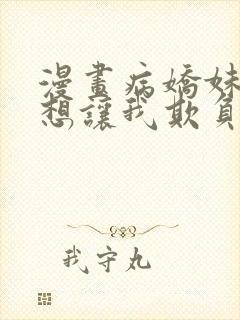 漫畫病嬌妹
想讓我欺負
我守丸